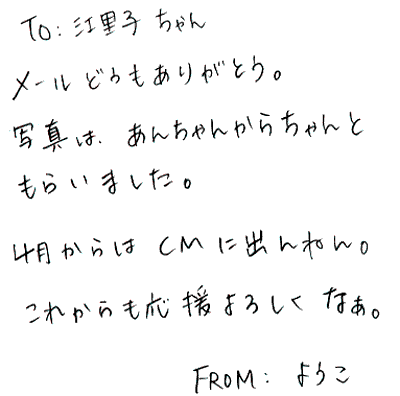 TO: 江里子 ちゃん
メール どうも ありがとう。
写真は、あんちゃんからちゃんと
もらいました。
4月からは CMに出んねん。
これからも応援よろしく なぁ。
FROM: ようこ